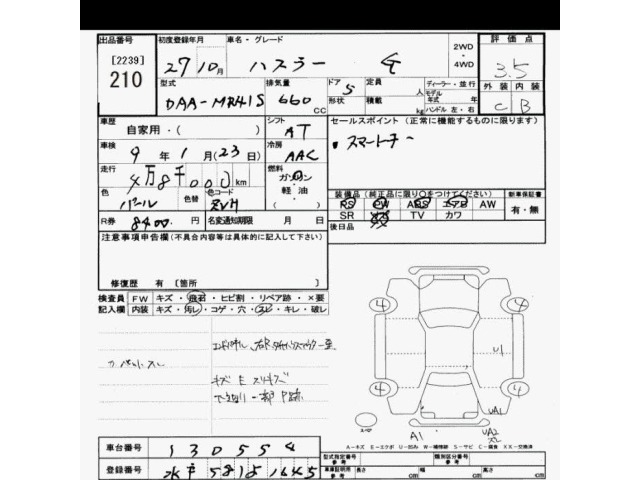 出品番号 初度登録年月 車名・グレード 2WD・4WD 評価点
[2239] 210 27年10月 ハスラー G 3.5
型式 排気量 ドア 定員 ディーラー・並行 外装 内装
DAA-MR41S 660 CC 5 形状 積載 人 kg モデル年式 年 ハンドル 左・右 C B
車歴 シフト セールスポイント(正常に機能するものに限ります)
自家用・( ) AT ・スマートキー
車検 冷房
9年1月(23日) AAC
走行 燃料
4万8千000km ガソリン・軽油・( )
色 色替 色コード 装備品(純正品に限り○をつけてください) 新車保証書
パール ZVH PS PW ABS エアB AW 有・無
SR ナビ TV カワ
R券 8400円 名変通知期限 月 日 後日品
注意事項申告欄(不具合内容等は具体的に記入して下さい)
修復歴 有 [箇所 ]
検査員 FW キズ・飛石・ヒビ割・リペア跡・×要
記入欄 内装 キズ・汚レ・コゲ・穴・スレ・キレ・破レ
4 4
U1
4 4
キズ E
UA1
A1 UA2
A-キズ E-エクボ U-凹み W-補修跡 S-サビ C-腐食 XX-交換済
車台番号 130554 型式指定番号 参考 類別区分番号 参考
登録番号 水戸 581 い 1645 車庫証明用 参考 長さ cm 幅 cm 高さ cm